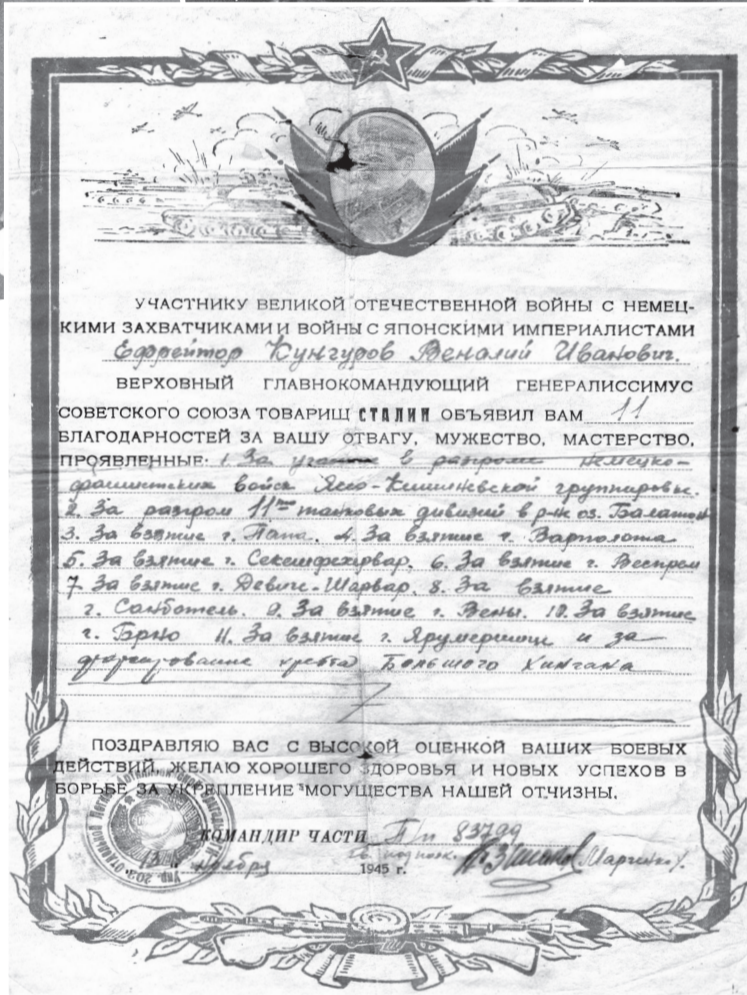 УЧАСТНИКУ ВЕЛИКОЙ ОТЕЧЕСТВЕННОЙ ВОЙНЫ С НЕМЕЦ-
КИМИ ЗАХВАТЧИКАМИ И ВОЙНЫ С ЯПОНСКИМИ ИМПЕРИАЛИСТАМИ
Ефрейтор Кунгуров Веналий Иванович.
ВЕРХОВНЫЙ ГЛАВНОКОМАНДУЮЩИЙ ГЕНЕРАЛИССИМУС
СОВЕТСКОГО СОЮЗА ТОВАРИЩ СТАЛИН ОБЪЯВИЛ ВАМ 11
БЛАГОДАРНОСТЕЙ ЗА ВАШУ ОТВАГУ, МУЖЕСТВО, МАСТЕРСТВО,
ПРОЯВЛЕННЫЕ: 1. За участие в разгроме немецко-
фашистских войск Ясо-Кишиневской группировки.
2. За разгром 11ти танковых дивизий в р-не оз. Балатон
3. За взятие г. Папа. 4. За взятие г. Варполота
5. За взятие г. Секешфехирвар. 6. За взятие г. Веспрем
7. За взятие г. Девиче-Шарвар. 8. За взятие
г. Самботель. 9. За взятие г. Вены. 10. За взятие
г. Брно 11. За взятие г. Ярумержице и за
форсирование хребта Большого Хингана
ПОЗДРАВЛЯЮ ВАС С ВЫСОКОЙ ОЦЕНКОЙ ВАШИХ БОЕВЫХ
ДЕЙСТВИЙ, ЖЕЛАЮ ХОРОШЕГО ЗДОРОВЬЯ И НОВЫХ УСПЕХОВ В
БОРЬБЕ ЗА УКРЕПЛЕНИЕ МОГУЩЕСТВА НАШЕЙ ОТЧИЗНЫ.
КОМАНДИР ЧАСТИ П/п 83799
13 ноября 1945 г. гв. подполк.